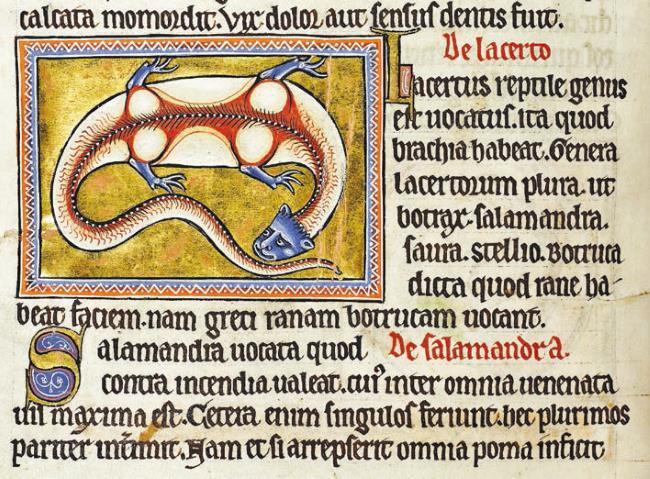 calcata momordit. vyx dolor aut sensus dentis fuit.
De lacerto
Lacertus reptile genus
est uocatus. ita quod
brachia habeat. Genera
lacertorum plura. ut
botrax. salamandra.
saura. stellio. Botruca
dicta quod rane ha-
beat faciem. nam greci ranam botrucam uocant.
Salamandra uocata quod De salamandra.
contra incendia ualeat. cuiꝰ inter omnia uenenata
uis maxima est. Cetera enim singulos feriunt. hec plurimos
pariter intimit. Nam et si arrepserit omnia poma inficit